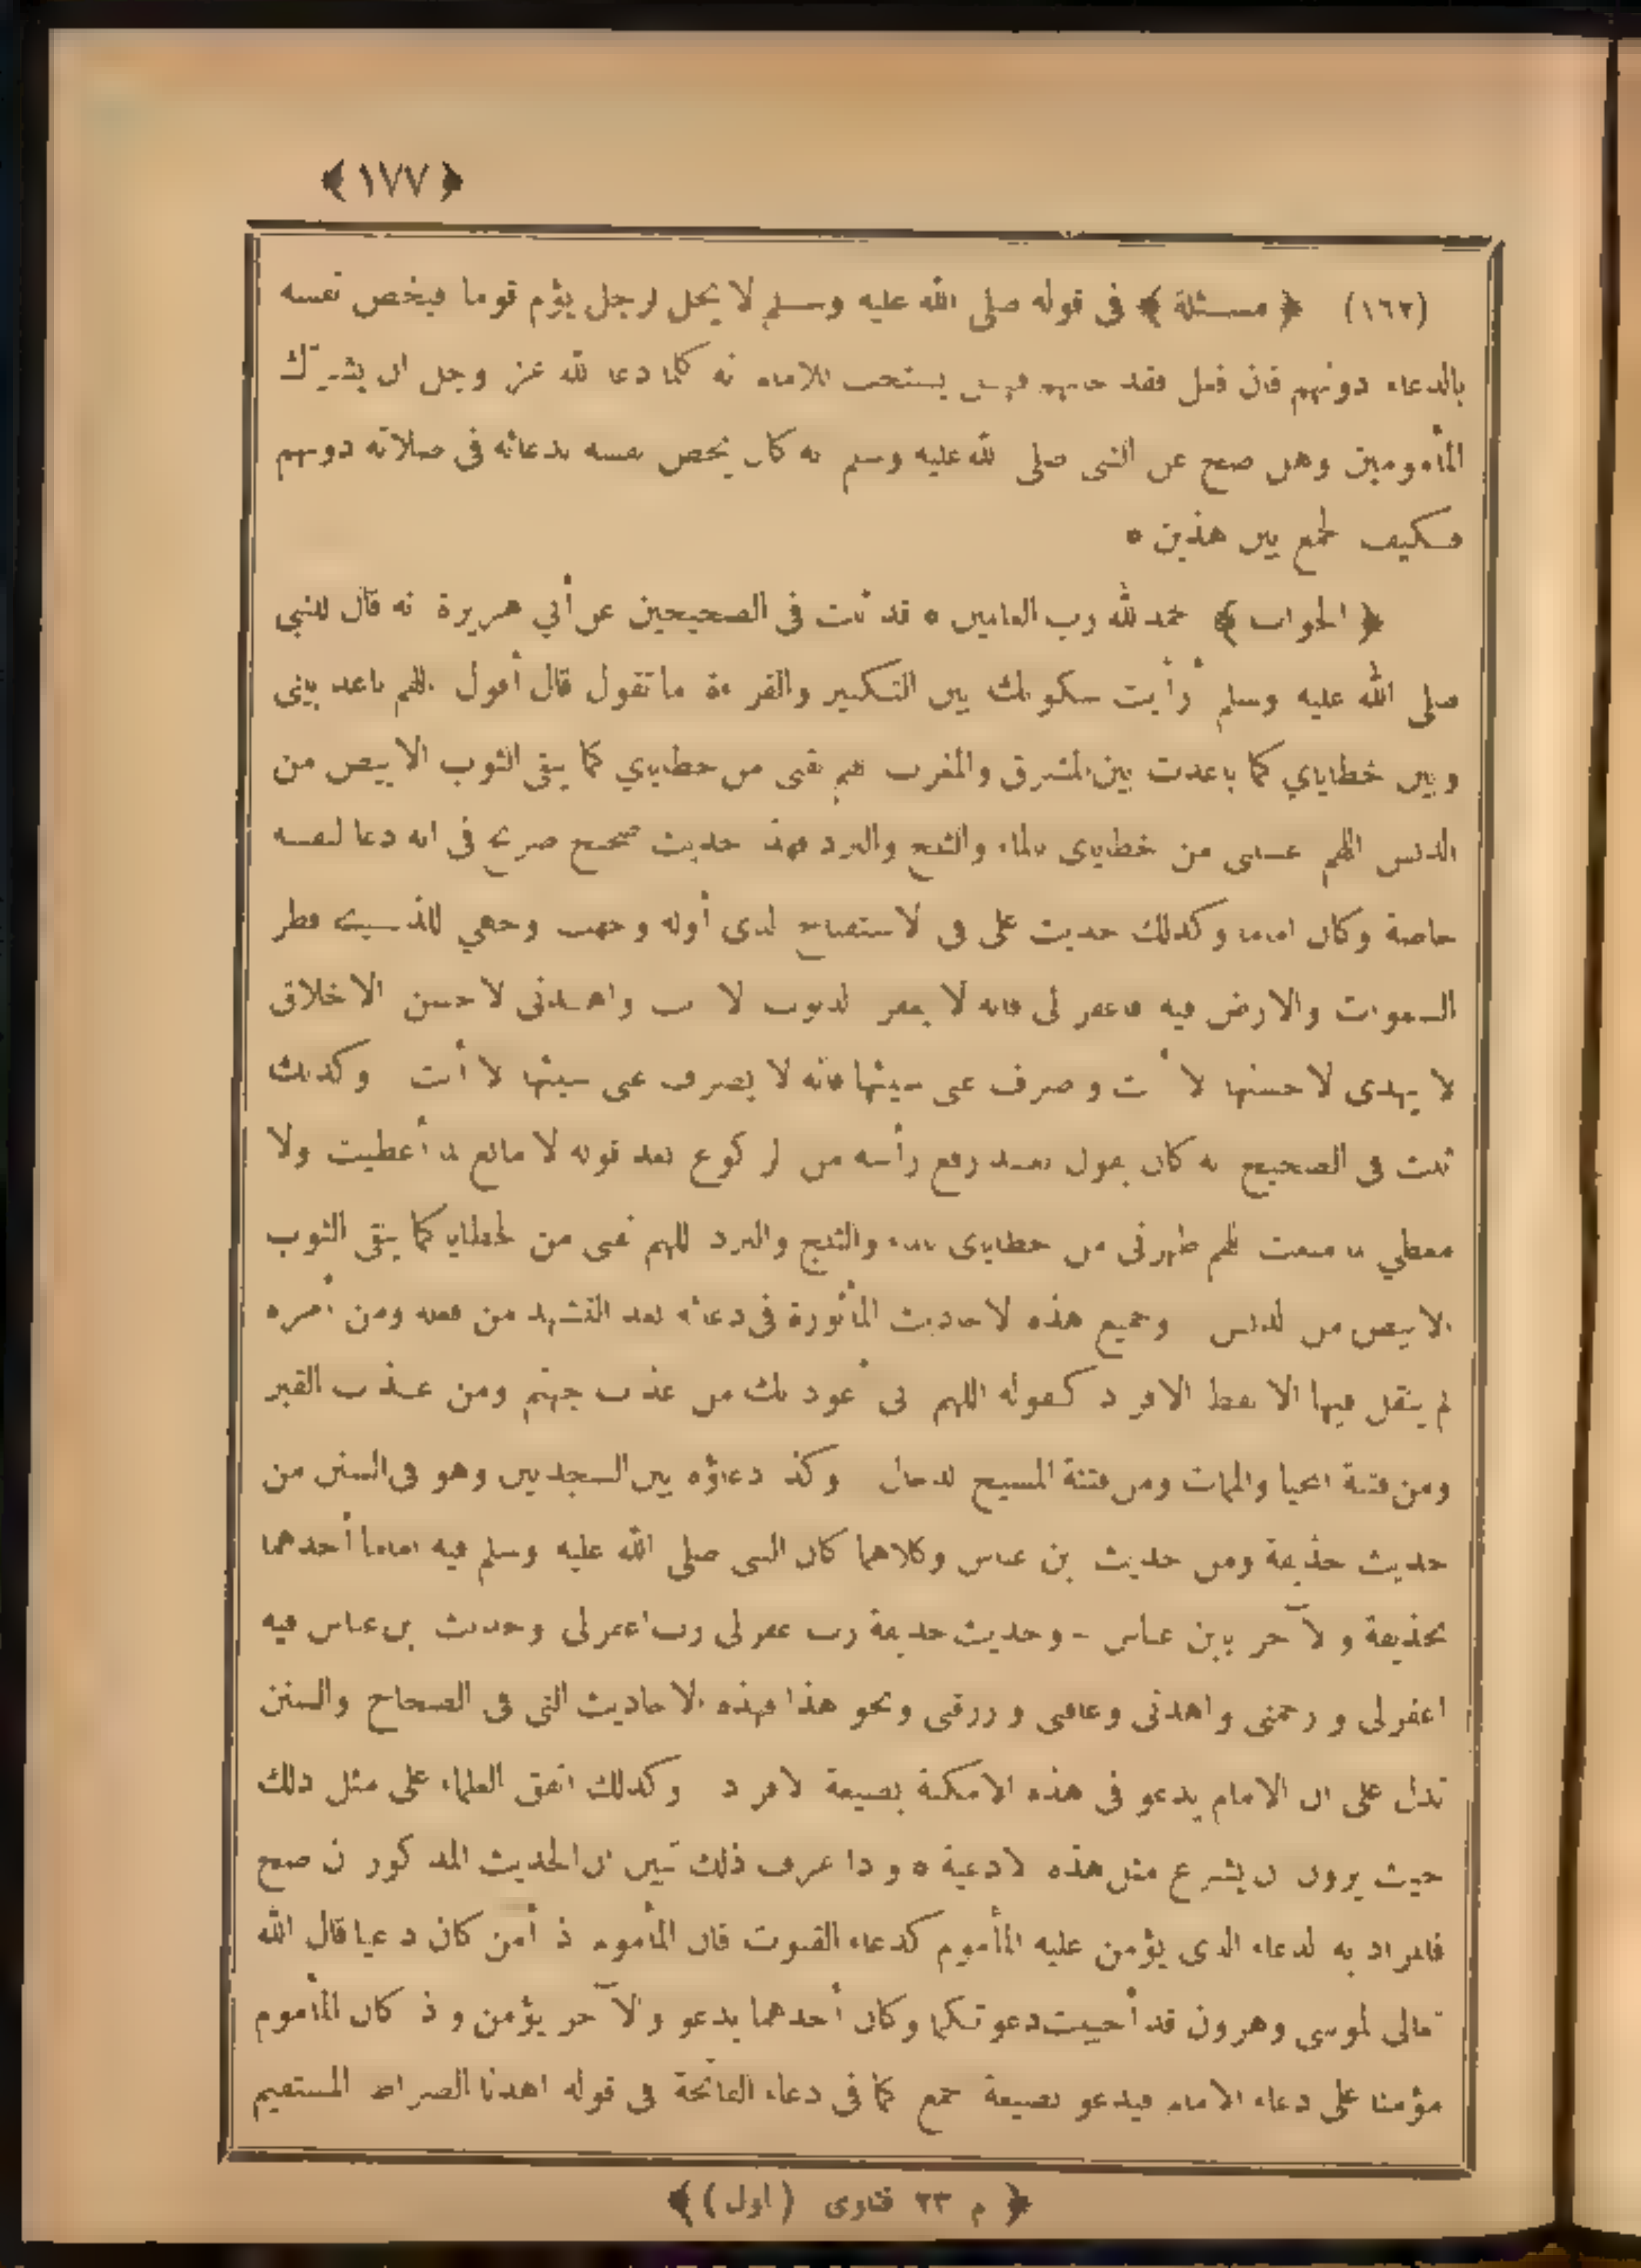 ﴿ ١٧٧ ﴾
(١٦٢) ﴿ مسئلة ﴾ فى قوله صلى الله عليه وسلم لا يحل لرجل يؤم قوما فيخص نفسه
بالدعاء دونهم فان فعل فقد خانهم فهل يستحب للامام انه كلما دعا الله عز وجل ان يشرك
المأمومين وهل صح عن النبى صلى الله عليه وسلم انه كان يخص نفسه بدعائه فى صلاته دونهم
فكيف الجمع بين هذين ٥
﴿ الجواب ﴾ الحمد لله رب العالمين ٥ قد ثبت فى الصحيحين عن أبي هريرة انه قال للنبي
صلى الله عليه وسلم أرأيت سكوتك بين التكبير والقراءة ما تقول قال أقول اللهم باعد بينى
وبين خطاياي كما باعدت بين المشرق والمغرب اللهم نقنى من خطاياي كما ينقى الثوب الابيض من
الدنس اللهم اغسلنى من خطاياى بالماء والثلج والبرد فهذا حديث صحيح صريح فى انه دعا لنفسه
خاصة وكان اماما وكذلك حديث على فى الاستفتاح الذى أوله وجهت وجهي للذي فطر
السموات والارض فيه فاغفر لى فانه لا يغفر الذنوب الا انت واهدنى لاحسن الاخلاق
لا يهدى لاحسنها الا أنت واصرف عنى سيئها فانه لا يصرف عنى سيئها الا أنت وكذلك
ثبت فى الصحيح انه كان يقول بعد رفع رأسه من الركوع بعد قوله لا مانع لما أعطيت ولا
معطي لما منعت اللهم طهرنى من خطاياى بالماء والثلج والبرد اللهم نقنى من الخطايا كما ينقى الثوب
الابيض من الدنس وجميع هذه الاحاديث المأثورة فى دعائه بعد التشهد من فعله ومن أمره
لم ينقل فيها الا لفظ الافراد كقوله اللهم انى أعوذ بك من عذاب جهنم ومن عذاب القبر
ومن فتنة المحيا والممات ومن فتنة المسيح الدجال وكذا دعاؤه بين السجدتين وهو فى السنن من
حديث حذيفة ومن حديث ابن عباس وكلاهما كان النبى صلى الله عليه وسلم فيه اماما أحدهما
بحذيفة والآخر بابن عباس - وحديث حذيفة رب اغفر لى رب اغفر لى وحديث ابن عباس فيه
اغفر لى وارحمنى واهدنى وعافنى وارزقنى ونحو هذا فهذه الاحاديث التى فى الصحاح والسنن
تدل على ان الامام يدعو فى هذه الامكنة بصيغة الافراد وكذلك اتفق العلماء على مثل ذلك
حيث يرون ان يشرع مثل هذه الادعية ٥ واذا عرف ذلك تبين ان الحديث المذكور ان صح
فالمراد به الدعاء الذى يؤمن عليه المأموم كدعاء القنوت فان المأموم اذا أمن كان داعيا قال الله
تعالى لموسى وهرون قد أجيبت دعوتكما وكان أحدهما يدعو والآخر يؤمن واذا كان المأموم
مؤمنا على دعاء الامام فيدعو بصيغة الجمع كما فى دعاء الفاتحة فى قوله اهدنا الصراط المستقيم
﴿ م ٢٣ فتاوى (اول) ﴾